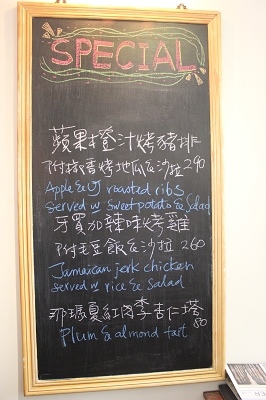 SPECIAL
蘋果橙汁烤豬排
附椒香烤地瓜&沙拉 290
Apple & OJ roasted ribs
served w sweet potato & salad
牙買加辣味烤雞
附毛豆飯&沙拉 260
Jamaican jerk chicken
served w rice & salad
那瑪夏紅肉李杏仁塔
80
Plum & almond tart